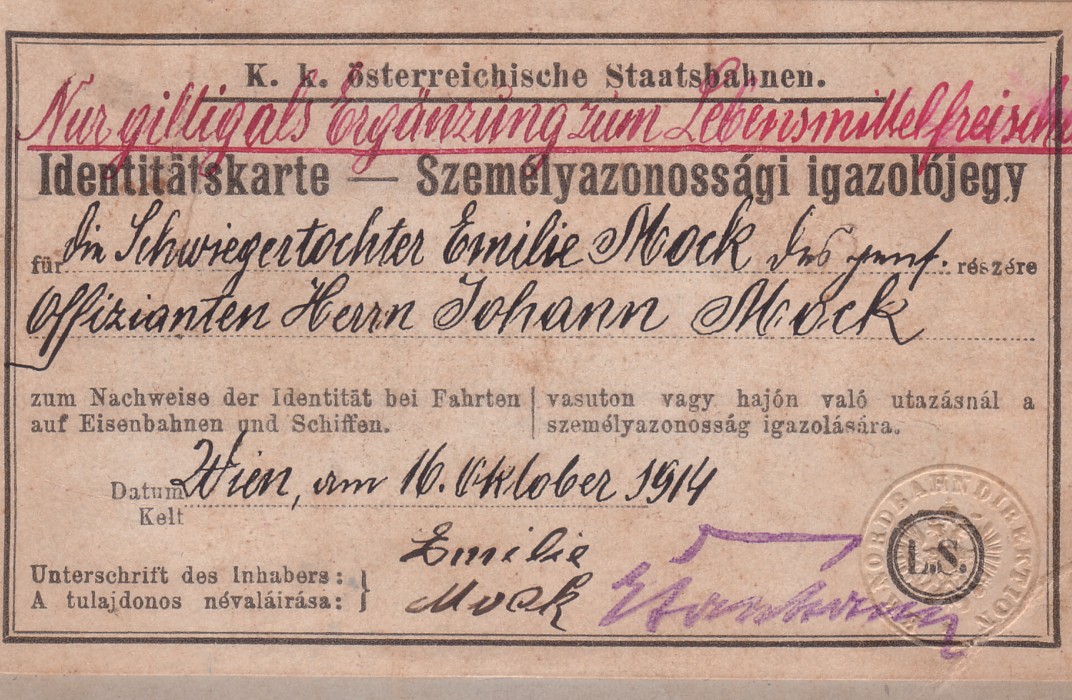 K. k. österreichische Staatsbahnen.
Nur giltig als Ergänzung zum Lebensmittelfreische
Identitätskarte — Személyazonossági igazolójegy
für die Schwiegertochter Emilie Mock des pens. részére
Offizianten Herrn Johann Mock
zum Nachweise der Identität bei Fahrten
auf Eisenbahnen und Schiffen.
vasuton vagy hajón való utazásnál a
személyazonosság igazolására.
Datum Wien, am 16. Oktober 1914
Kelt
Unterschrift des Inhabers:
A tulajdonos névaláirása:
Emilie
Mock
L.S.
NORDBAHNDIREKTION